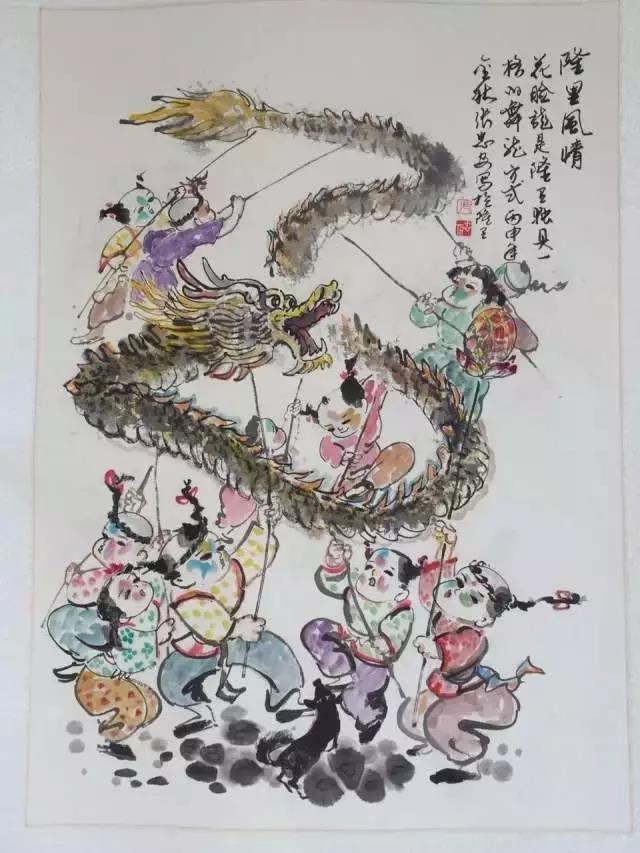 隆里風情
花臉龍是隆里独具一
格的舞龙方式丙申年
金秋张忠写於隆里